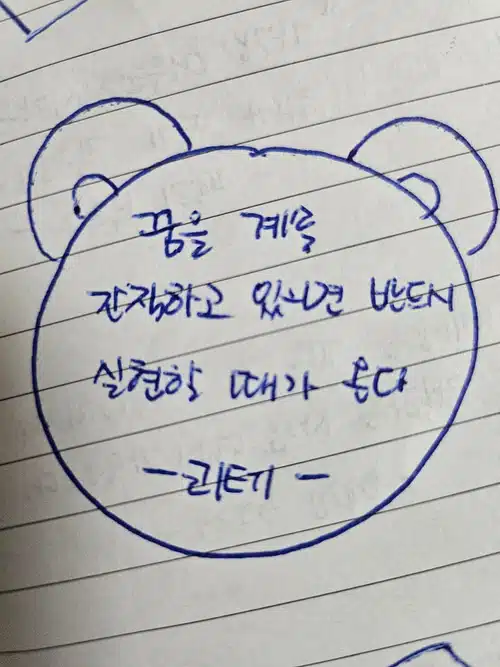 꿈을 계속
간직하고 있으면 반드시
실현할 때가 온다
-괴테-